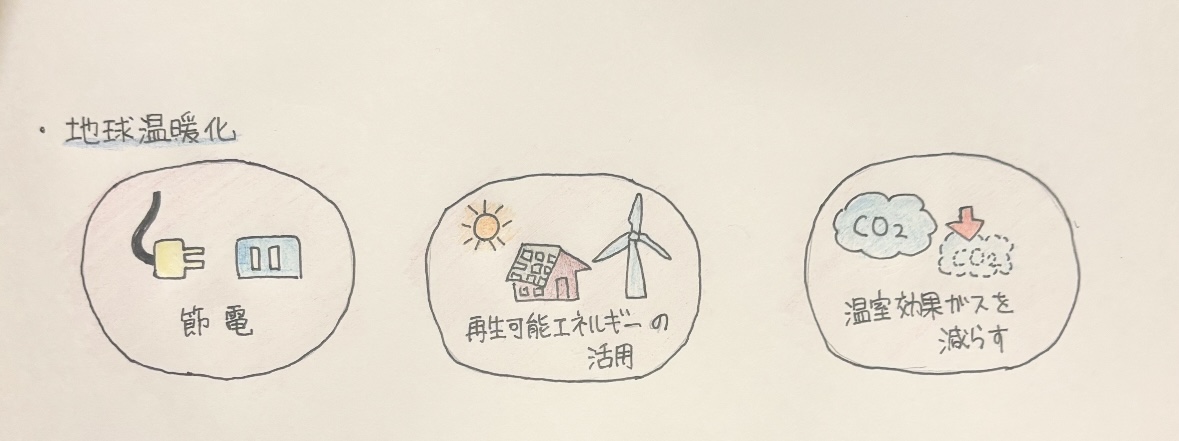 ・地球温暖化
節電
再生可能エネルギーの
活用
CO2
CO2
温室効果ガスを
減らす